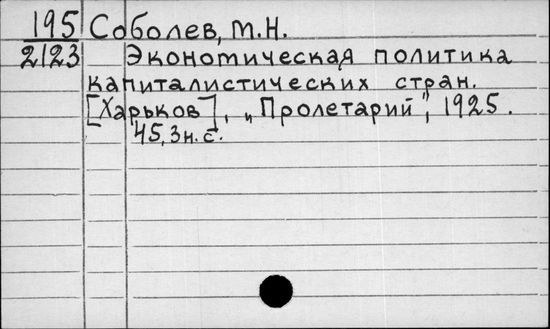 195 Соболев, М.Н.
2123 Экономическая политика
капиталистических стран.
[Харьков], „Пролетарий", 1925.
45, 3 н. с.